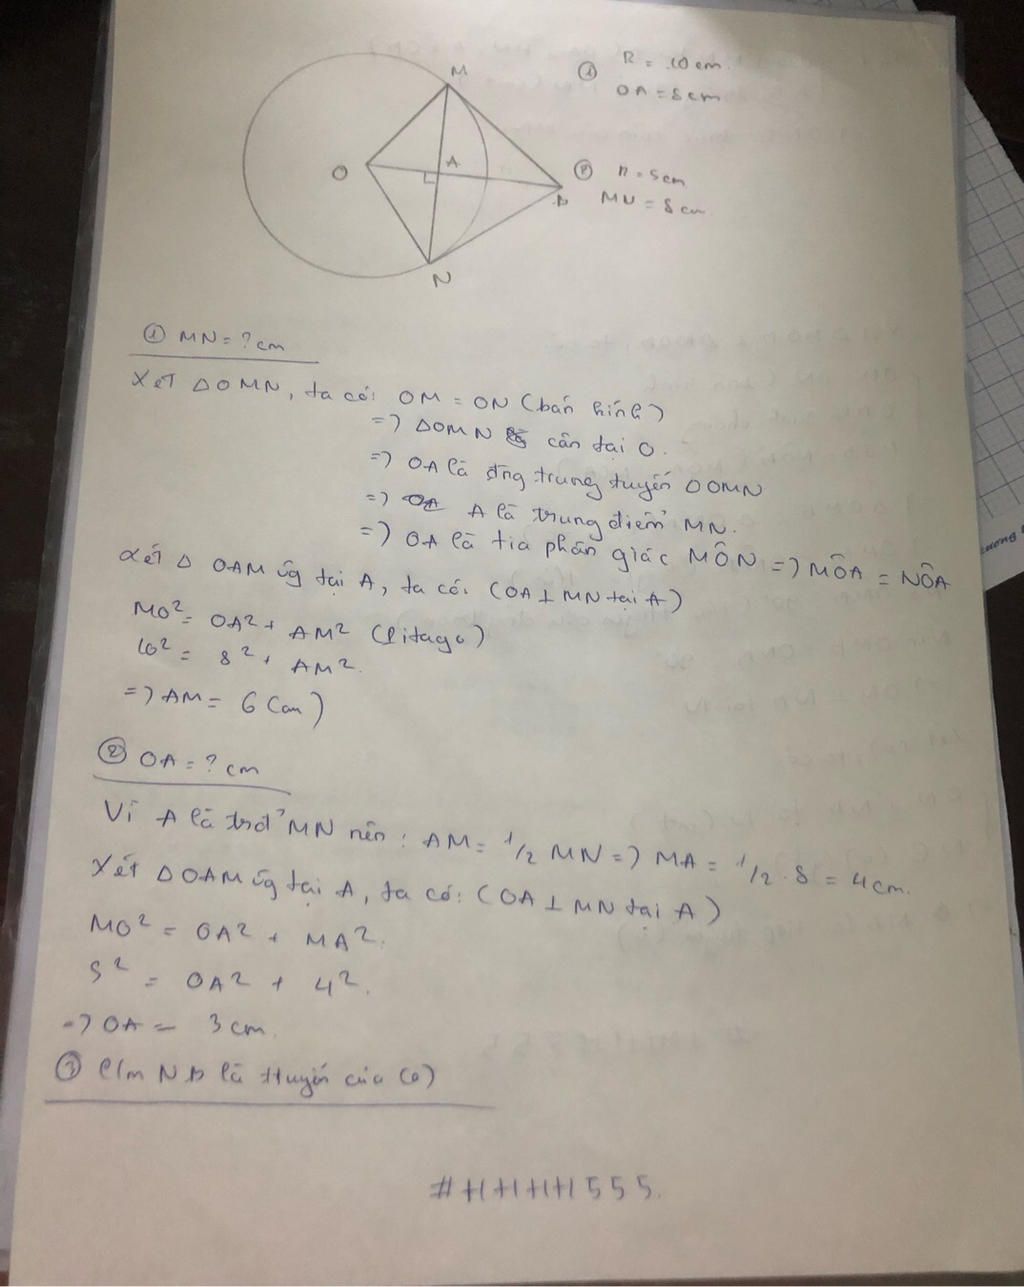 M
① R = 10 cm.
OA = 8cm
O
A
② R = 5cm
MN = 8 cm
D
N
① MN = ? cm
Xét ΔOMN, ta có: OM = ON (bán kính)
=> ΔOMN cân tại O.
=> OA là đng trung tuyến ΔOMN
=> A là trung điểm MN.
=> OA là tia phân giác MÔN => MÔA = NÔA
Xét Δ OAM ⊥ug tại A, ta có: (OA ⊥ MN tại A)
MO² = OA² + AM² (Pitago)
10² = 8² + AM².
=> AM = 6 (cm)
② OA = ? cm
Vì A là trđ' MN nên: AM = 1/2 MN => MA = 1/2 . 8 = 4cm.
Xét ΔOAM ⊥ug tại A, ta có: (OA ⊥ MN tại A)
MO² = OA² + MA².
5² = OA² + 4².
=> OA = 3 cm.
③ C/m ND là ttuyến của (O)